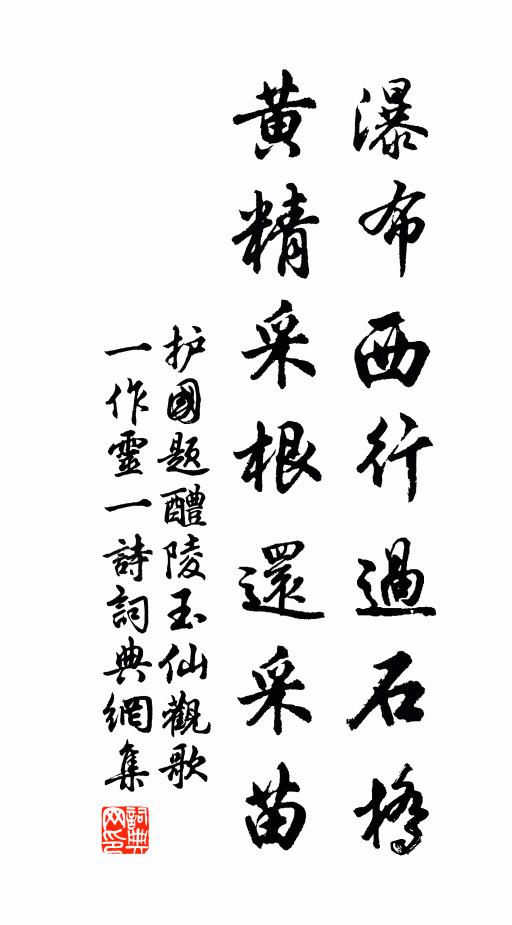 瀑布西行過石橋
黃精采根還采苗
护國题醴陵玉仙觀歌
一作靈一詩詞典網集
詞典網印